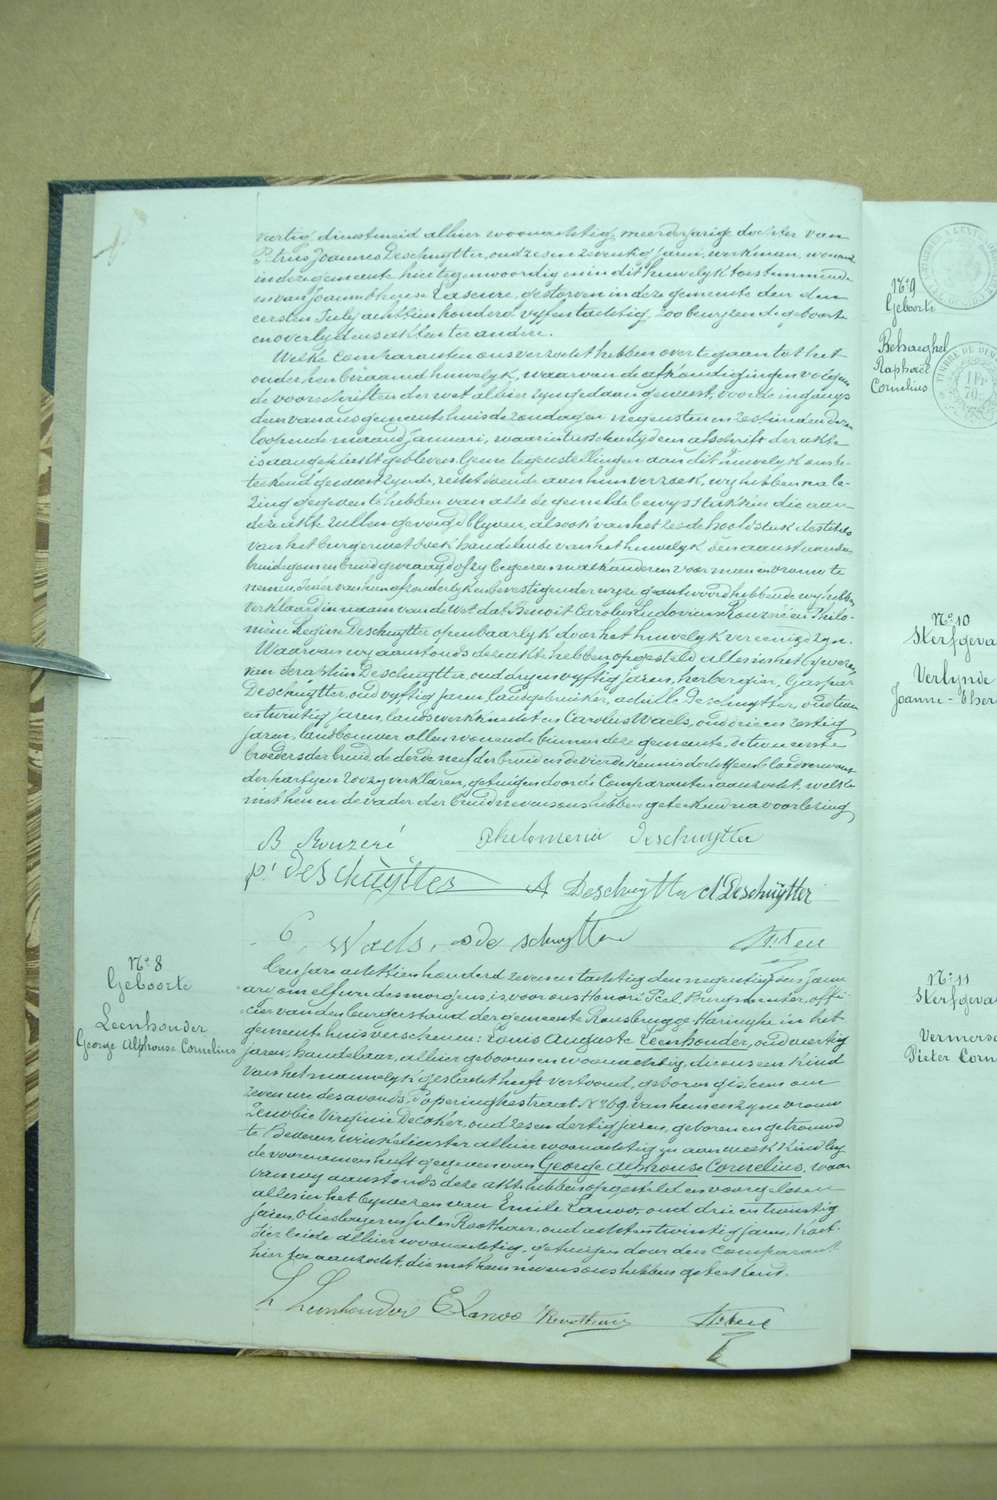 veertig, dienstmeid alhier woonachtig, meerderjarige dochter van
Petrus Joannes Deschuytter, oud zes en zeventig jaren, werkman, wonende
in deze gemeente hier tegenwoordig en in dit huwelyk toestemmende
en van Joanna Theresia Laseure, gestorven in deze gemeente den
eersten July achttien honderd vyf en tachtig, zoo bewyzen de geboorte
en overlydensakten ter andere.
Welke Comparanten ons verzocht hebben over te gaan tot het
onder hen beraamd huwelyk, waarvan de afkondigingen volgens
de voorschriften der wet alhier zyn gedaan geweest, voor de ingang
dezen van ons gemeentehuis de zondagen negensten en zestienden der
loopende maand January, waarintusschentyd een afschrift der akte
is aangeplakt gebleven. Geene tegenstellingen aan dit huwelyk aanbe-
teekend geweest zynde, recht doende aan hun verzoek, wy hebben na le-
zing gegeven te hebben van alle de gemelde bewysstukken die aan
deze akte zullen gevoegd blyven, alsook van het zesde hoofdstuk des titels
van het burgerwetboek handelende van het huwelyk den aanstaanden
bruidegom en bruid gevraagd of zy begeeren malkanderen voor man en vrouw te
nemen, ieder van hun afzonderlyk en bevestigender wyze geantwoord hebbende wy hebben
verklaard in naam van de Wet dat Benoit Carolus Ludovicus Rouzeré en Philo-
mène Regina Deschuytter openbaarlyk door het huwelyk vereenigd zyn.
Waarvan wy aanstonds deze akte hebben opgesteld alles in het bywezen
van Seraphin Deschuytter, oud dry en vyftig jaren, herbergier, Gaspar
Deschuytter, oud vyftig jaren, landgebruiker, Achille Deschuytter, oud twee
en twintig jaren, landswerkknecht en Carolus Waels, oud drie en zestig
jaren, landbouwer allen wonende binnen deze gemeente, de twee eerste
broeders der bruid, de derde neef der bruid en de vierde kennis doch geen bloedverwant
der partyen zoo zy verklaren, getuigen door de Comparanten aanzocht, welke
met hen en de vader der bruid nevens ons hebben geteekend na voorlezing
B Rouzeré Philomenia Deschuytter
p. deschuytter A Deschuytter A Deschuytter
C. Waels, s de schuytter
N° 8
Geboorte
Leenhouder
George Alphonse Cornelius
Een jaar achttien honderd zeven en tachtig den negentigsten Janu
ari om elf ure des morgens, is voor ons Honoré Peel Burgmeester, offi-
cier van den burgerstand der gemeente Rousbrugge-Haringhe in het
gemeentehuis verschenen: Louis Auguste Leenhouder, oud veertig
jaren, handelaar, alhier geboren en woonachtig, die ons een kind
van het mannelyk geslacht heeft vertoond, geboren gisteren om
zeven ure des avonds, Poperinghestraat N° 69, van hem en zyne vrouw
Zenobie Virginie Decoker, oud zes en dertig jaren, geboren en getrouwd
te Beveren, winkelierster alhier woonachtig en aan welk Kind hy
de voornamen heeft gegeven van George Alphonse Cornelius, waar
van wy aanstonds deze akte hebben opgesteld en voorgelezen
alles in het bywezen van Emile Lanoo, oud drie en twintig
jaren, vliesbayer en Jules Roothaer, oud acht en twintig jaren, kost-
tier beide alhier woonachtig, getuigen door den Comparant
hier toe aanzocht, die met hem nevens ons hebben geteekend.
L Leenhouder E Lanoo
N° 9
Geboorte
Behaeghel
Raphaël
Cornelius
N° 10
Sterfgeval
Verlynde
Joanna-Ther
N° 11
Sterfgeva
Vermersc
Pieter Corn
TIMBRE DE DIM
1 FR
70